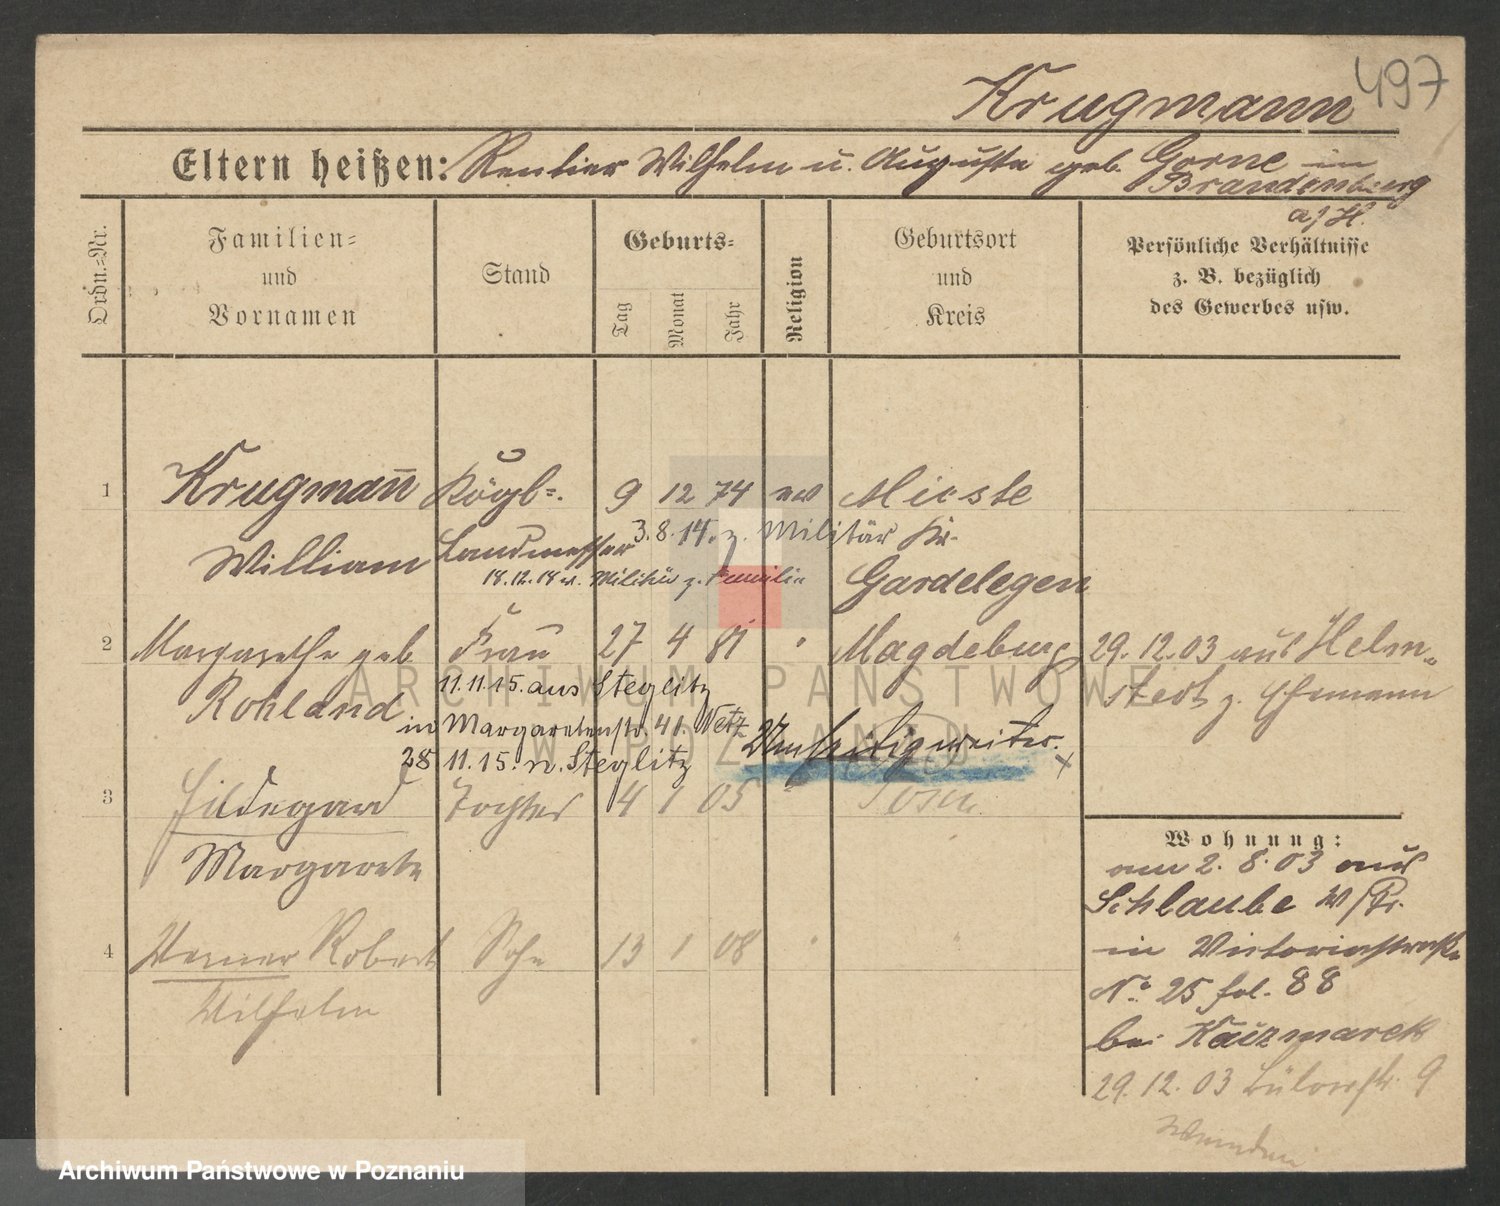 497
Krugmann
Eltern heißen: Rentier Wilhelm u. Auguste geb. Gorne in
Brandenburg
a/H.
Ordn.-Nr.
Familien-
und
Vornamen
Stand
Geburts-
Tag
Monat
Jahr
Religion
Geburtsort
und
Kreis
Persönliche Verhältnisse
z. B. bezüglich
des Gewerbes usw.
1 Krugmann̄ Kögl. 9 12 74 ev Mieste
William Landmesser 3.8.14. z. Militär Kr.
18.12.18 v. Militär z. Familie Gardelegen
2 Margarethe geb Frau 27 4 81 " Magdeburg 29.12.03 aus Helm-
Rohland 11.11.15. aus Steglitz stedt z. Ehemann
in Margaretenstr. 41. Netz
28 11.15. n. Steglitz
3 Hildegard Tochter 4 1 05 " Posen
Margarete
4 Werner Robert Sohn 13 1 08 "
Wilhelm
Wohnung:
am 2.8.03 aus
Schlaube W/Pr.
in Victoriastraße
No. 25 fol. 88
bei Kaczmarek
29.12.03 Bülowstr. 9
Wenden
ARCHIWUM PAŃSTWOWE
W POZNANIU
Archiwum Państwowe w Poznaniu